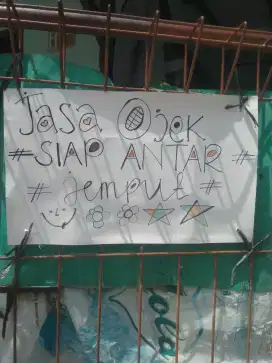 Jasa Ojek
#SIAP ANTAR #
# jemput #